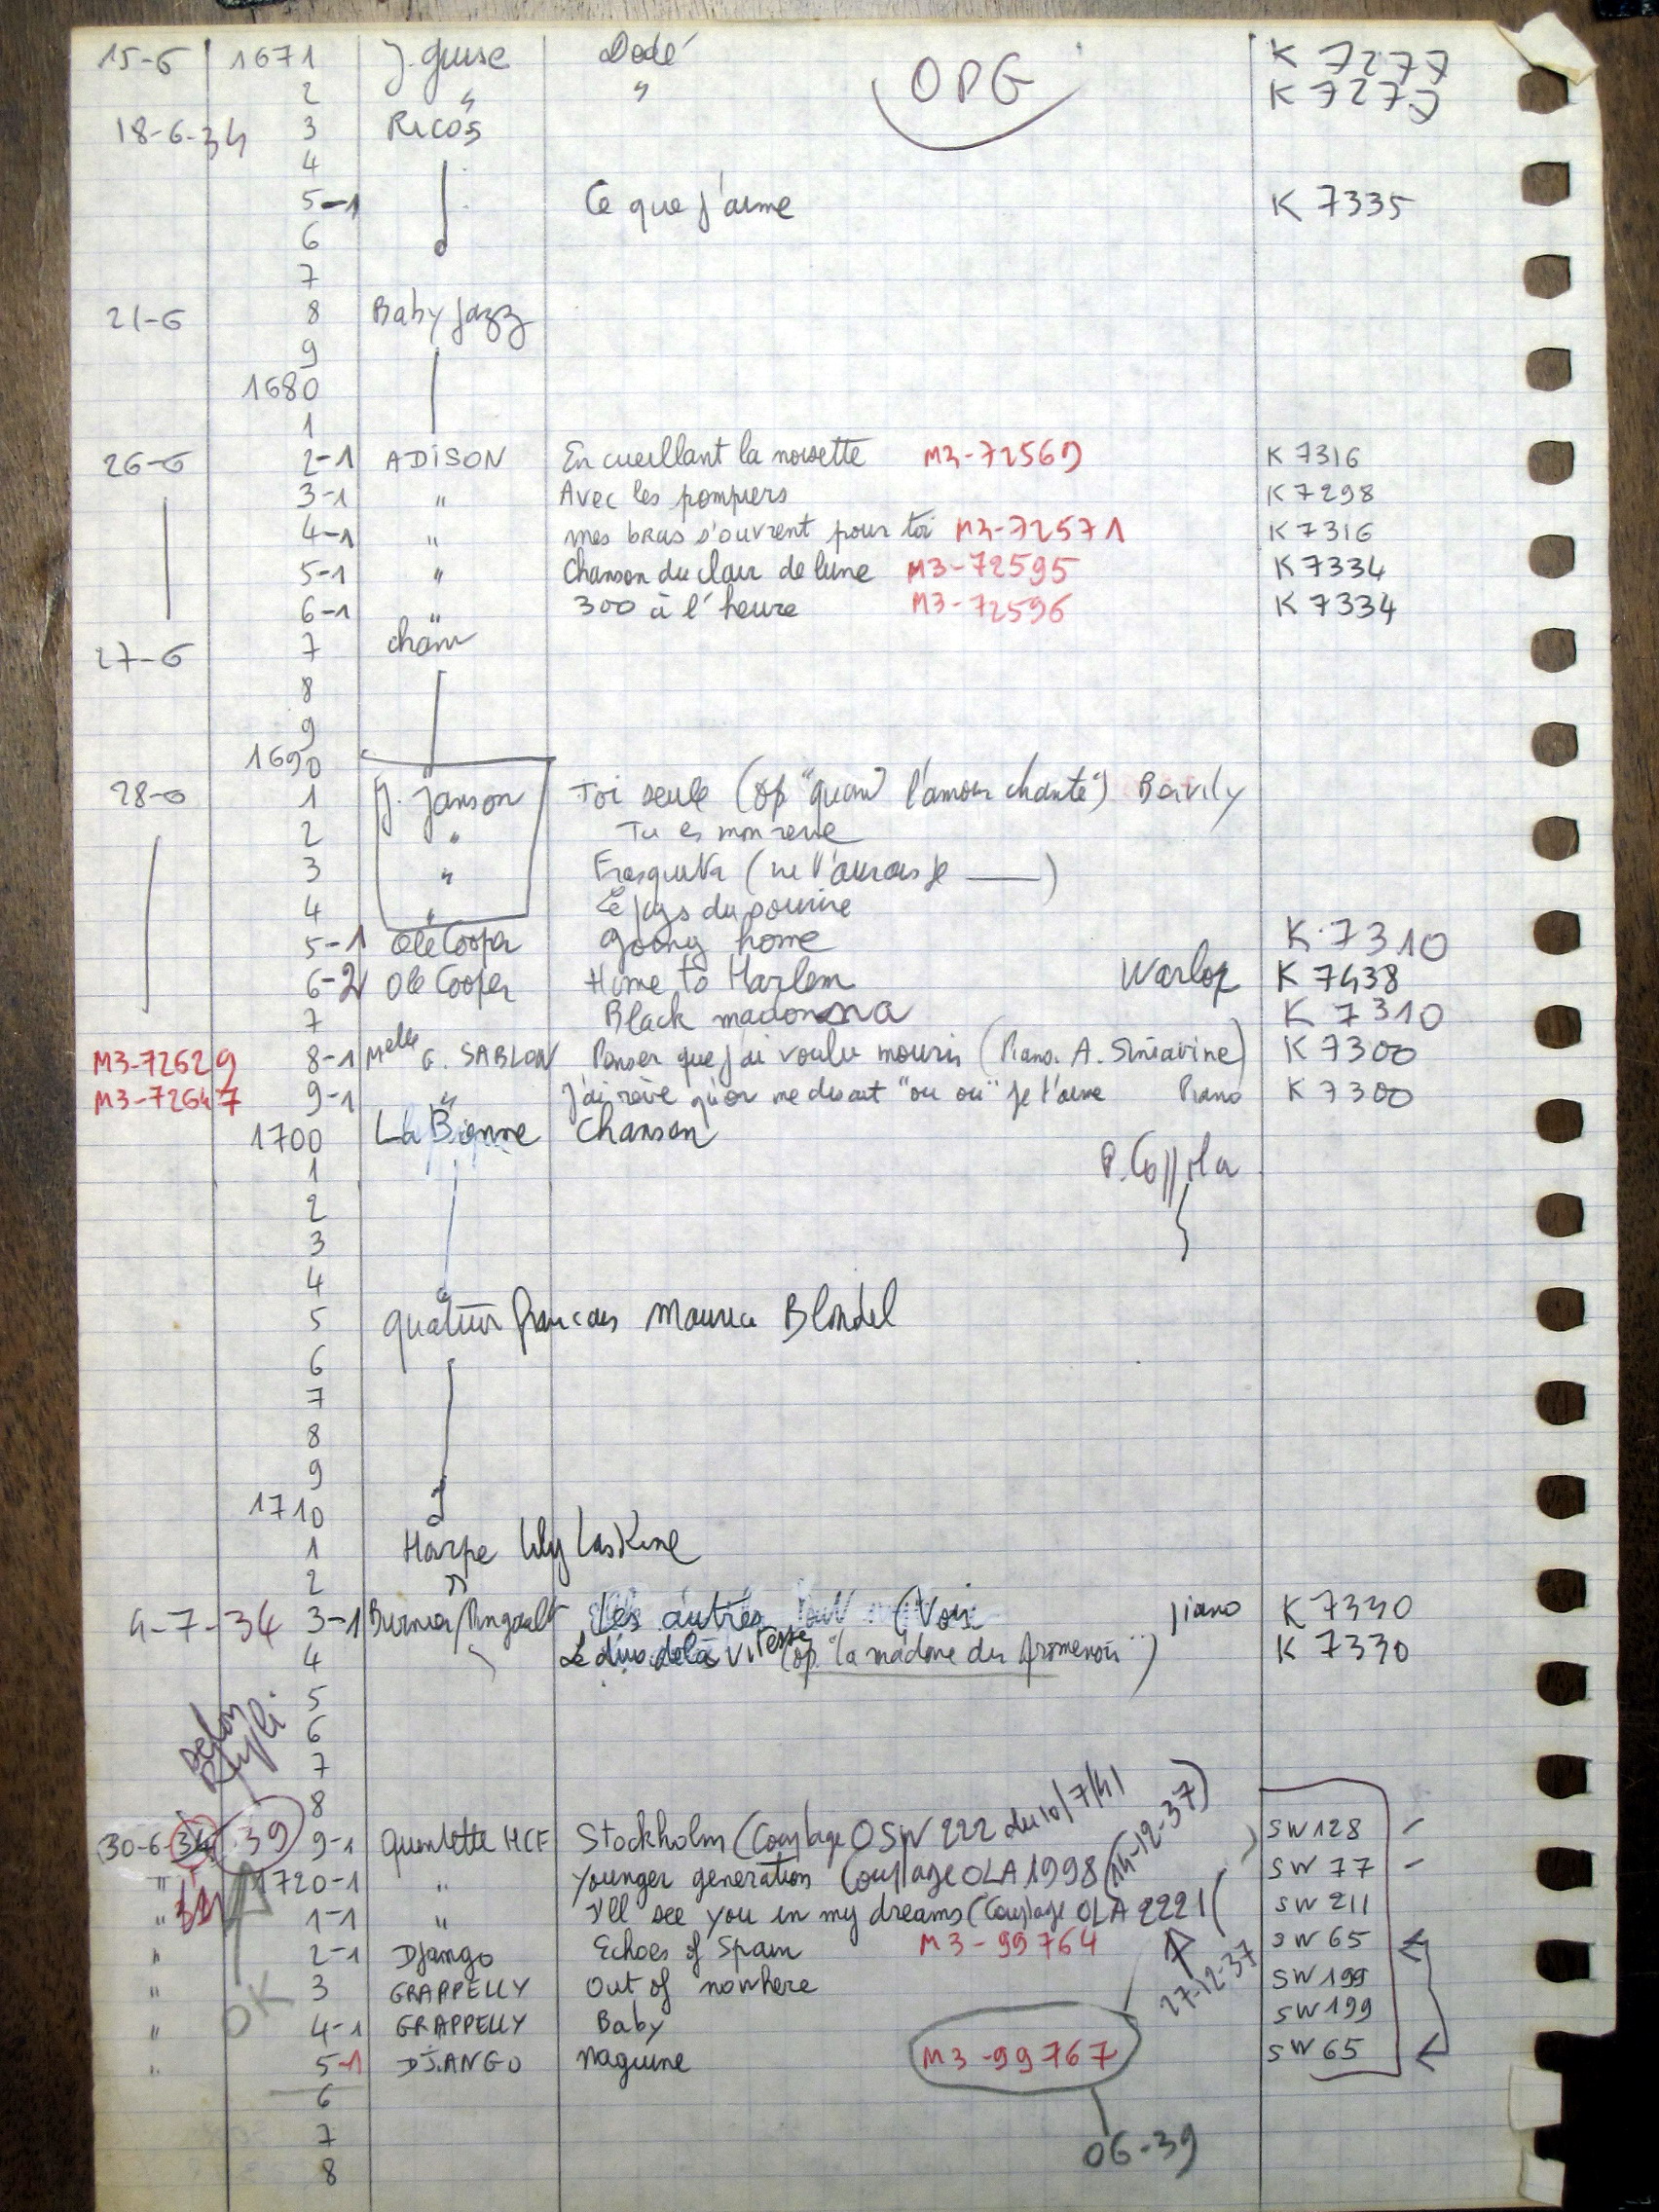 15-6 1671 J. Guise Dodé OPG K 7277
2 " " K 7277
18-6-34 3 Ricos
4
5-1 Ce que j'aime K 7335
6
7
21-6 8 Baby Jazz
9
1680
1
26-6 2-1 ADISON En cueillant la noisette M3-72569 K 7316
3-1 " Avec les pompiers K 7298
4-1 " mes bras s'ouvrent pour toi M3-72571 K 7316
5-1 " Chanson du clair de lune M3-72595 K 7334
6-1 " 300 à l'heure M3-72596 K 7334
27-6 7
8
9
1690
28-6 1 J. Janson Toi seule (op "quand l'amour chante")
2 " Tu es mon reve
3 " Frasquita (ne t'aurais je —)
4 " Le pays du sourire
5-1 Ole Cooper Going home K 7310
6-2 Ole Cooper Home to Harlem Warlop K 7438
7 Black madonna K 7310
M3-72629 8-1 Melle G. SABLON Penser que j'ai voulu mourir (Piano. A. Siniavine) K 7300
M3-72647 9-1 " J'ai rêvé qu'on me disait "ou ou" je t'aime Piano K 7300
1700 La Chanson
1 P. Coppola
2
3
4
5 Quatuor francais Maurice Blondel
6
7
8
9
1710
1 Harpe Lily Laskine
2 "
4-7-34 3-1 Burnier/Pingault Les autres (Voir piano K 7330
4 Le dieu de la vitesse (op. "la madone du promenoir") K 7330
5
6
7
selon Ruppli
8
(30-6-34) 39 9-1 Quintette HCF Stockholm (Couplage OSW 222 du 10/7/41 SW 128
" 1720-1 " Younger generation Couplage OLA 1998 (14-12-37) SW 77
" 39 1-1 " I'll see you in my dreams (Couplage OLA 2221 ( SW 211
" 2-1 Django Echoes of Spain M3-99764 27-12-37 SW 65
" OK 3 GRAPPELLY Out of nowhere SW 199
" 4-1 GRAPPELLY Baby SW 199
" 5-1 DJANGO naguine M3-99767 SW 65
6
7 06-39
8